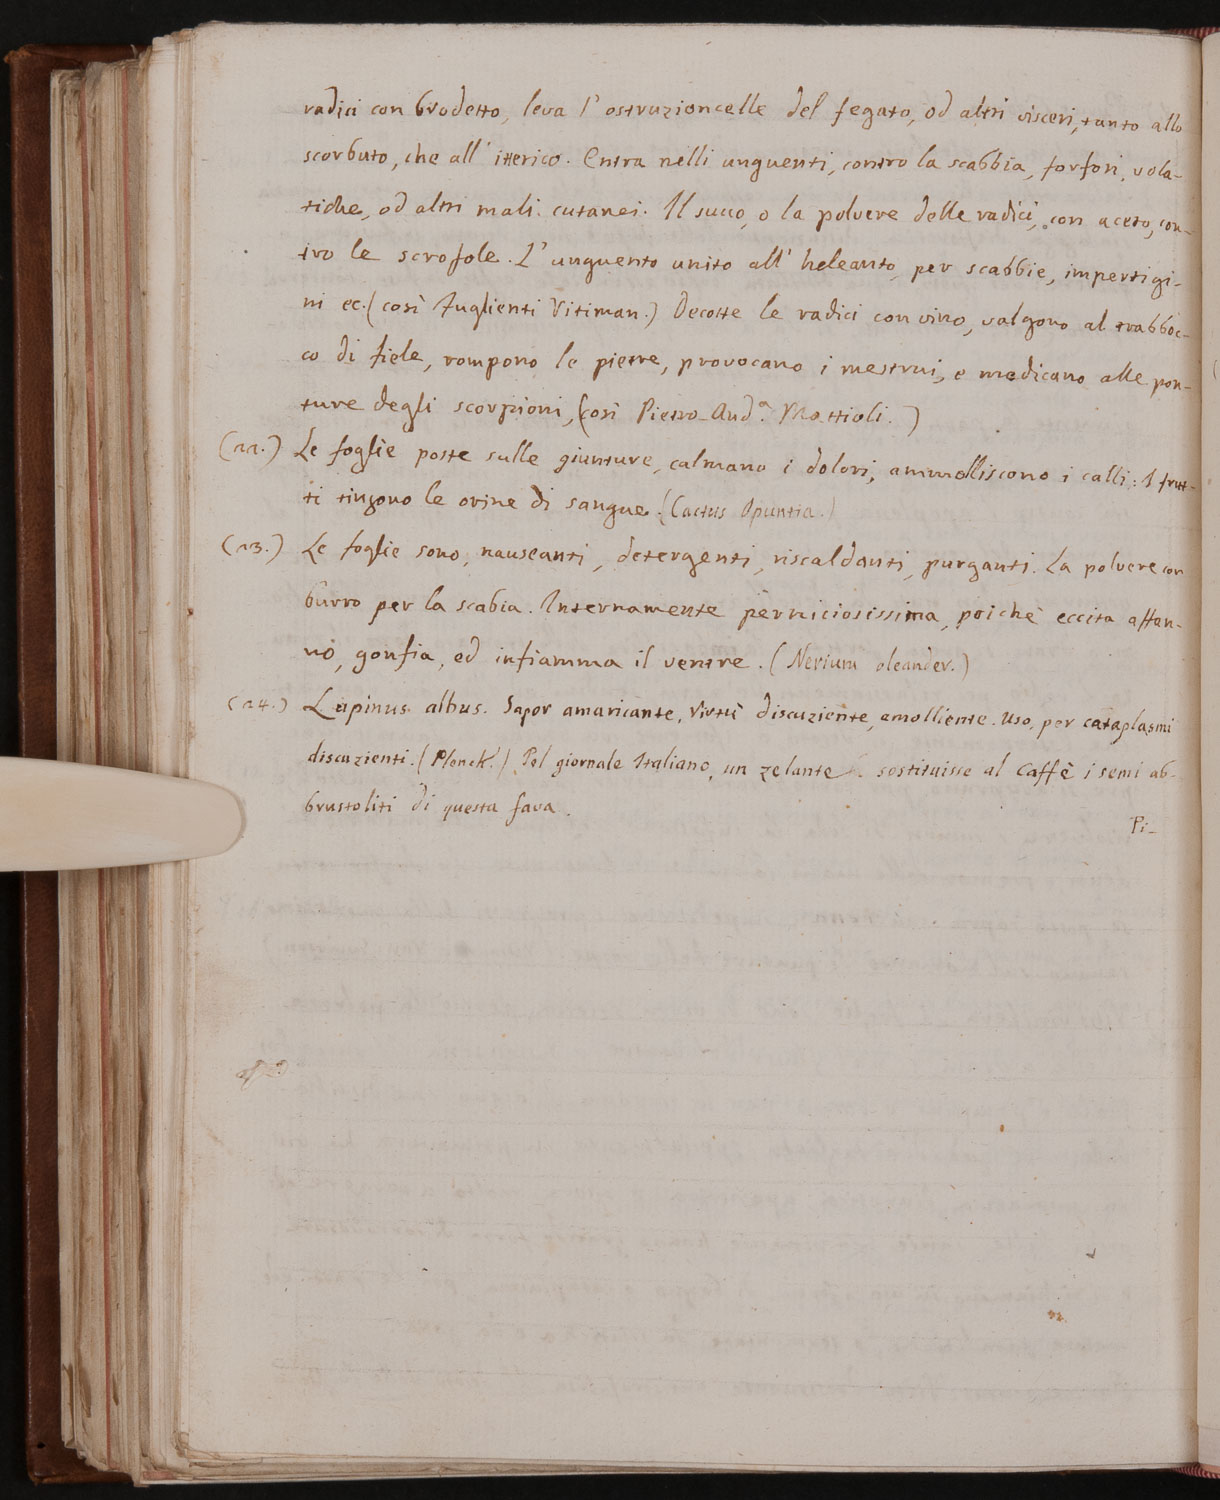 radici con brodetto, leva l'ostruzioncelle del fegato, od altri visceri, tanto allo
scorbuto, che all' itterico. Entra nelli unguenti, contro la scabbia, forfori, vola-
tiche, od altri mali cutanei. Il succo, o la polvere delle radici, con aceto, con-
tro le scrofole. L'unguento unito all' heleanto, per scabbie, impertigi-
ni ec. (così Fuglienti Vitiman.) Decotte le radici con vino, valgono al trabboc-
co di fiele, rompono le pietre, provocano i mestrui, e medicano alle pon-
ture degli scorpioni, (così Pietro And.a Mattioli.)
(12.) Le foglie poste sulle giunture, calmano i dolori, ammolliscono i calli: I frut-
ti tingono le orine di sangue. (Cactus Opuntia.)
(13.) Le foglie sono, nauseanti, detergenti, riscaldanti, purganti. La polvere con
burro per la scabia. Internamente perniciosissima, poichè eccita affan-
no, gonfia, ed infiamma il ventre. (Nerium oleander.)
(14.) Lupinus albus. Sapor amaricante, Virtù discuziente, amolliente. Uso, per cataplasmi
discuzienti. (Plenck.) Pel giornale Italiano, un zelante sostituisse al Caffè i semi ab-
brustoliti di questa fava.
Pi-